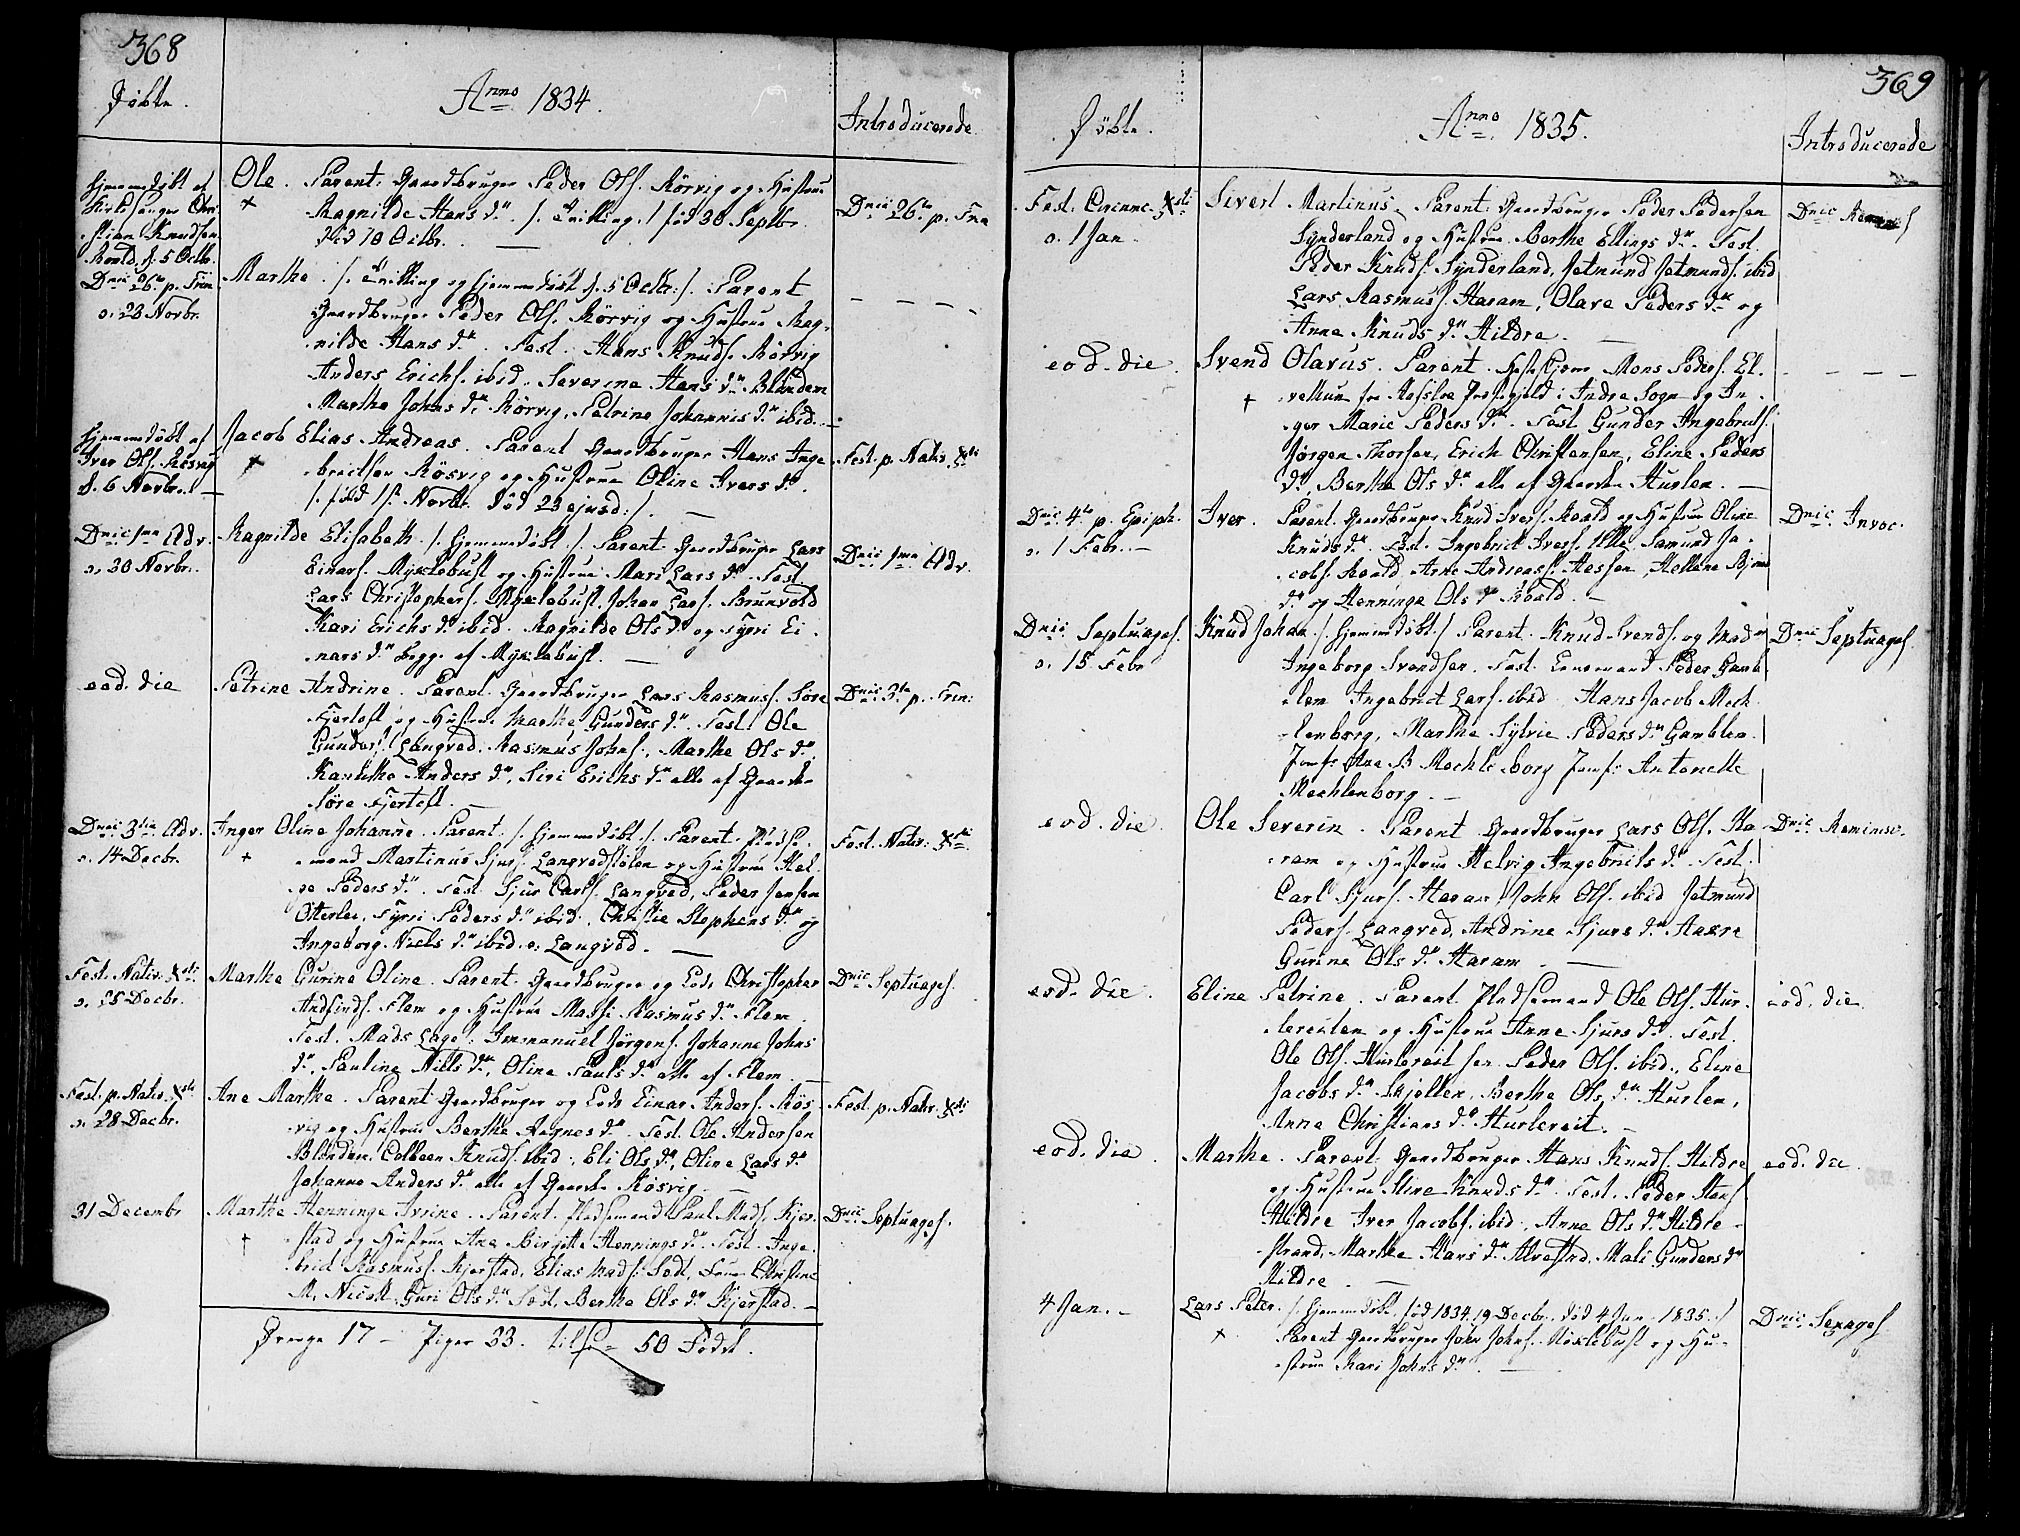 368
Døbte.
Anno 1834.
Introducerede
Hjemmedøbt af
Kirkesanger Chri-
stian Knudsen
Roald d. 5 Octbr.
Ole. Parent: Gaardbruger Peder Ols. Rörvig og Hustrue
Ragnilde Hans dr. /: Tvilling :/ fød 30 Septbr.
død 10 Octbr.
Dnic 26de p. Trin
Dnic 26de p. Trin
o: 23 Novbr.
Marthe. /: Tvilling og hjemmedøbt d. 5 Octbr :/ Parent
Gaardbruger Peder Ols. Rörvig og Hustrue Rag-
nilde Hans dr. Test. Hans Knuds. Rörvig
Anders Erichs. ibid. Severine Hans dr Blindem
Marthe Johns dr Rörvig, Petrine Johannis dr ibid.
Hjemmedøbt af
Iver Ols. Rösvig
d. 6 Novbr.
Jacob Elias Andreas. Parent Gaardbruger Hans Inge
brectsen Rösvig og Hustrue Oline Ivers dr.
/: fød 1ste Novbr. død 23 ejusd :/
Fest. p. Nativ. Xsti
Dnic 1ma Adv.
o: 30 Novbr.
Ragnilde Elisabeth. /: hjemmedøbt :/ Parent Gaardbruger Lars
Einars. Myklebust og Hustrue Mari Lars dr. Test.
Lars Christophers. Myklebust. Johan Lars. Brunvold
Kari Erichs dr ibid. Ragnilde Ols dr og Syrri Ei-
nars dr begge af Myklebust.
Dnic 1ma Adv.
eod. die
Petrine Andrine. Parent Gaardbruger Lars Rasmus. Søre
Fjertoft og Hustrue Marthe Gunders dr. Test. Ole
Gunders. Langved. Rasmus Johns., Marthe Ols dr.
Anders dr, Siri Erichs dr alle af Gaarden
Søre Fjertoft.
Dnic 3tia p. Trin:
Dnic 3tia Adv.
o: 14 Decbr.
Inger Oline Johanne. Parent. /: hjemmedøbt :/ Parent. Pladse-
mand Martinus Sjurs. Langvedstölen og Hustrue Hel-
ge Peders dr. Test Sjur Carls. Langved, Peder Jensen
Otterlei, Syrri Peders dr ibid. Christie Stephens dr og
Ingeborg Niels dr ibid. o: Langved.
Fest. Nativ: Xsti
Fest. Nativ. Xsti
o: 25 Decbr.
Marthe Gurine Oline. Parent. Gaardbruger og Lods Christopher
Andfinds. Flem og Hustrue Massi Rasmus dr Flem.
Test. Mads Lages. Immanuel Jörgens. Johanne Johns
dr, Pauline Niels dr, Oline Pauls dr alle af Flem.
Dnic Septuages.
Fest. p. Nativ. Xsti
o: 28 Decbr.
Ane Marthe. Parent Gaardbruger og Lods Einar Anders. Rös
vig og Hustrue Berthe Aagnes dr. Test. Ole Andersen
Blindem. Colbeen Knuds. ibid., Eli Ols dr, Oline Lars dr
Johanne Anders dr alle af Gaarden Rösvig.
Fest p. Nativ. Xsti
31 Decembr
Marthe Henninge Ivrine. Parent. Pladsemand Paul Mads. Kjer-
stad og Hustrue Ane Birgitte Hennings dr. Test. Inge-
bret Rasmus. Kjerstad, Elias Mads. ibid, Fruen Christine
M. Guri Ols dr ibid, Berthe Ols dr Kjerstad.
Dnic Septuages.
Drenge 17 — Piger 33. tils. = 50 Fødsl.
369
Døbte.
Anno 1835.
Introducerede
Fest. Circumc. Xsti
o. 1 Jan.
Sivert Martinus. Parent: Gaardbruger Peder Pedersen
Synderland og Hustrue Berthe Ellings dr. Test.
Peder Knuds. Synderland, Jetmund Jetmunds. ibid
Lars Rasmus. Haram, Olave Peders dr og
Anne Knuds dr Hildre.
Dnic
eod. die.
Svend Olavus. Parent. Mons Peders. El-
vekun fra Hafsloe Præstegjeld i Indre Sogn og In-
ger Marie Peders dr. Test Gunder Ingebrets.
Jørgen Thorsen, Erich Christensen, Eline Peders
dr, Berthe Ols dr alle af Gaarden Hurlen.
Dnic 4de p. Epiph.
o. 1 Febr.
Iver. Parent. Gaardbruger Knud Ivers. Roald og Hustrue Oline
Knuds dr. Test. Ingebrit Ivers. Ulle Samund Ja-
cobs. Roald, Arne Andreas. Hessen, Hellene Bjørns
dr og Henninge Ols dr Roald.
Dnic. Invoc.
Dnic Septuages.
o. 15 Febr
Knud Johan /: hjemmedøbt :/ Parent. Knud Svends. og Madm
Ingeborg Svendsen. Test. Lensmand Peder Gamb-
lem Ingebrict Lars. ibid Hans Jacob Mech-
lenborg, Marthe Sylvie Peders dr Gamblem.
Jomfr: Ane B. Mechlenborg Jomfr: Antonette
Mechlenborg.
Dnic Septuages
eod. die.
Ole Severin. Parent Gaardbruger Lars Ols. Ha
ram og Hustrue Helvig Ingebrits dr. Test.
Carl Sjurs. Haram John Ols. ibid Jetmund
Peders. Langved, Andrine Sjurs dr Haxre
Gurine Ols dr Haram.
Dnic Reminisc.
eod. die.
Eline Petrine. Parent Pladsemand Ole Ols. Hur-
lereiten og Hustrue Anne Sjurs dr. Test.
Ole Ols. Hurlereit sen Peder Ols. ibid., Eline
Jacobs dr Skjelten, Berthe Ols dr Hurlen,
Anne Christians dr Hurlereit.
eod. die
eod. die.
Marthe. Parent Gaardbruger Hans Knuds. Hildre
og Hustrue Stine Knuds dr. Test. Peder Hans.
Hildre Iver Jacobs. ibid. Anne Ols dr Hildre-
strand, Marthe Hans dr Alvestad. Mali Gunders dr
Hildre.
eod. die
4 Jan.
Lars Peter. /: hjemmedøbt, fød 1834. 19 Decbr. død 4 Jan. 1835 :/
Parent Gaardbruger John Johns. Nöxlebust og Hu-
strue Kari Johns dr
Dnic Sexages